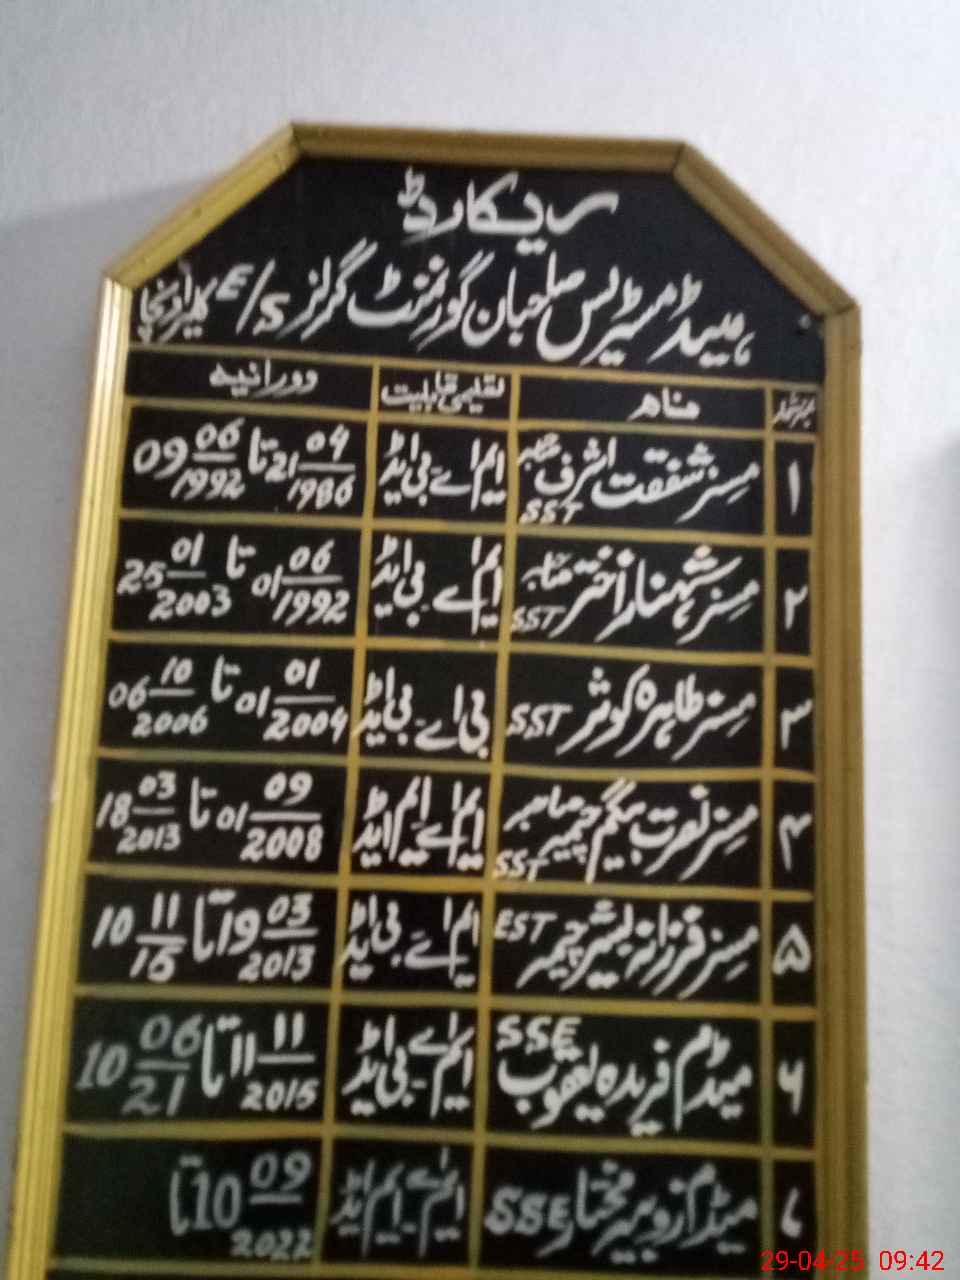 ریکارڈ
ہیڈ مسٹریس صاحبان گورنمنٹ گرلز E/S
نمبر شمار نام تعلیمی قابلیت دورانیہ
۱ مسز شفقت اشرف صاحبہ SST ایم اے۔ بی ایڈ 21 04/1986 تا 09 06/1992
۲ مسز شہناز اختر صاحبہ SST ایم اے۔ بی ایڈ 01 06/1992 تا 25 01/2003
۳ مسز طاہرہ کوثر SST بی اے۔ بی ایڈ 01 01/2004 تا 06 10/2006
۴ مسز نصرت بیگم چیمہ صاحبہ SST ایم اے ایم ایڈ 01 09/2008 تا 18 03/2013
۵ مسز فرزانہ بشیر چیمہ EST ایم اے۔ بی ایڈ 19 03/2013 تا 10 11/15
۶ میڈم فریدہ یعقوب SSE ایم اے۔ بی ایڈ 11 11/2015 تا 10 06/21
۷ میڈم زوبیہ مختار SSE ایم اے۔ ایم ایڈ 10 09/2022 تا
29-04-25 09:42